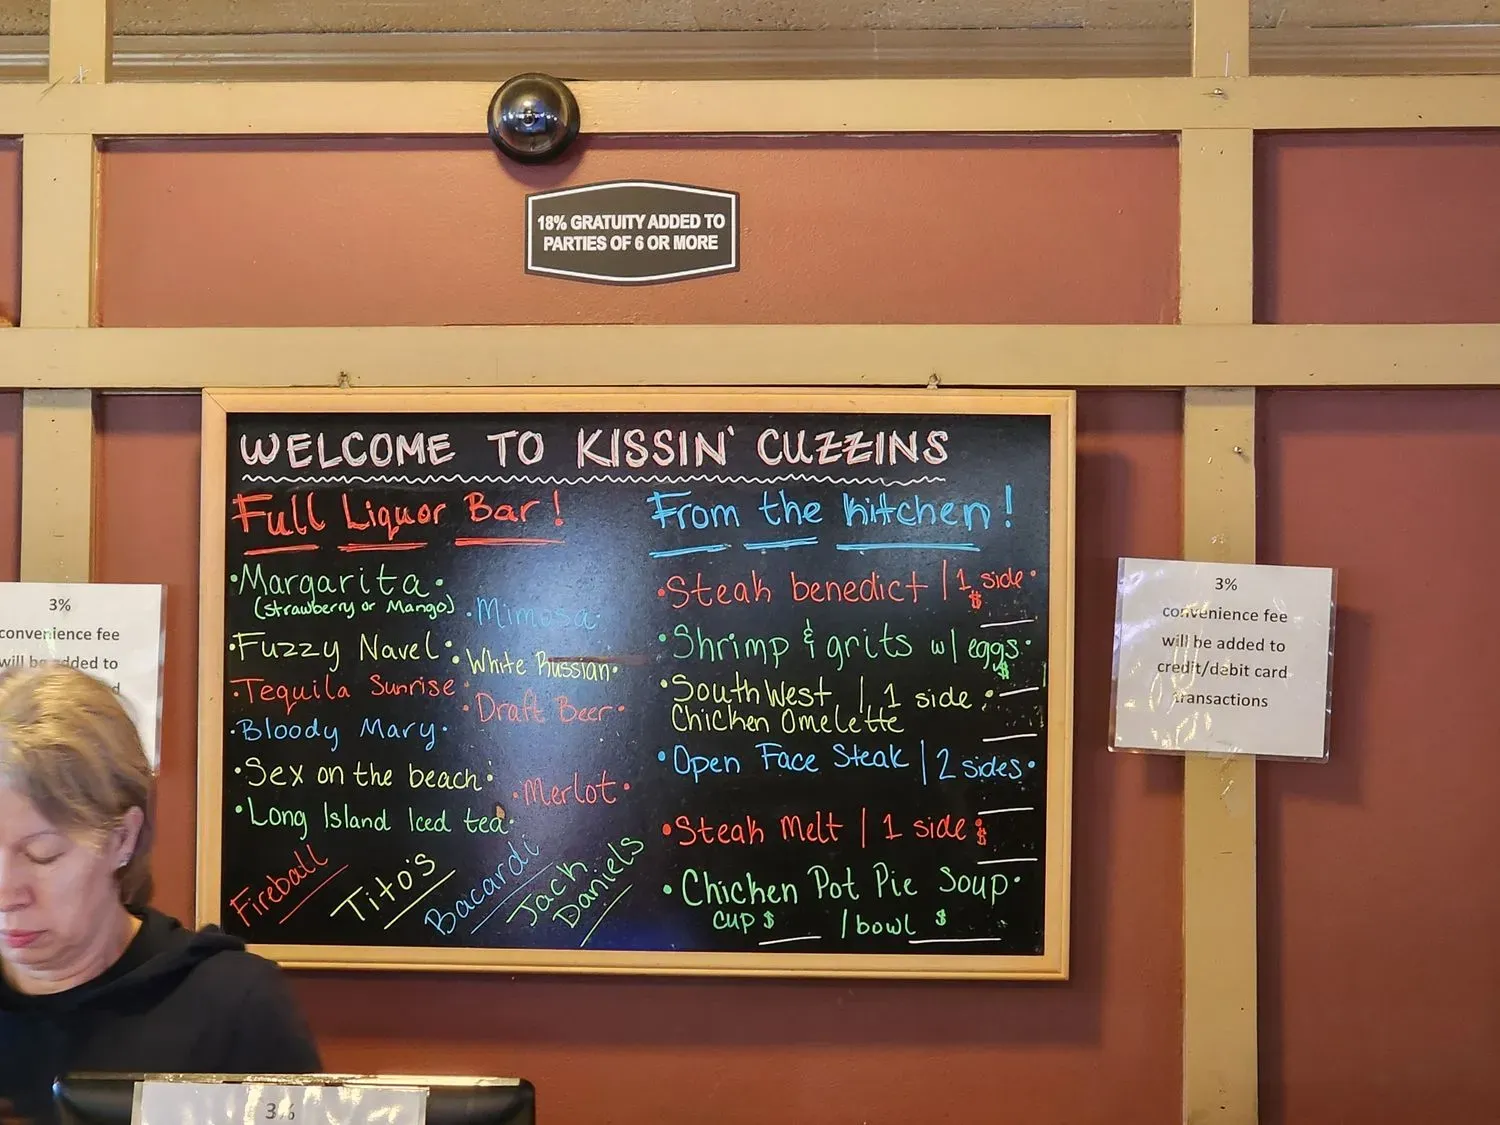 18% GRATUITY ADDED TO
PARTIES OF 6 OR MORE
WELCOME TO KISSIN' CUZZINS
Full Liquor Bar!
•Margarita•
(Strawberry or Mango)
•Mimosa•
•Fuzzy Navel•
•White Russian•
•Tequila Sunrise•
•Draft Beer•
•Bloody Mary•
•Sex on the beach•
•Merlot•
•Long Island Iced tea•
Fireball
Tito's
Bacardi
Jack
Daniels
From the kitchen!
•Steak benedict | 1 side•
$
•Shrimp & grits w/ eggs•
$
•SouthWest | 1 side•
Chicken Omelette
•Open Face Steak | 2 sides•
•Steak Melt | 1 side•
$
•Chicken Pot Pie Soup•
cup $ /bowl $
3%
convenience fee
will be added to
d
3%
convenience fee
will be added to
credit/debit card
transactions
3%